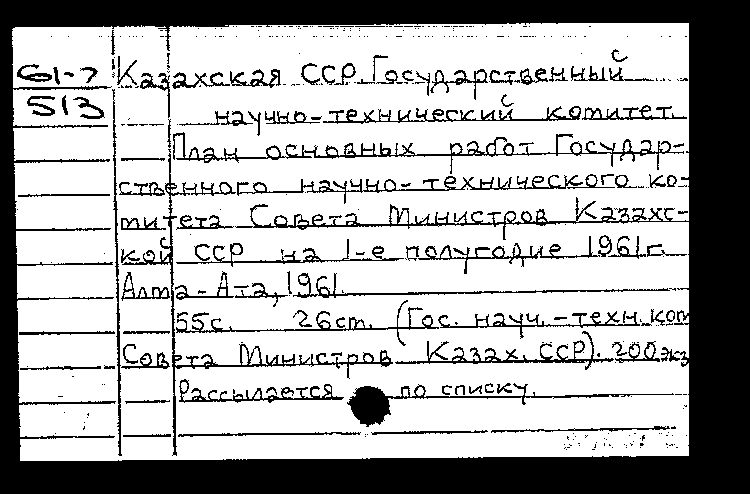 61-7 Казахская ССР. Государственный
513 научно-технический комитет.
План основных работ Государ-
ственного научно-технического ко-
митета Совета Министров Казахс-
кой ССР на 1-е полугодие 1961 г.
Алма-Ата, 1961.
55с. 26 cm. (Гос. науч.-техн. ком
Совета Министров Казах. ССР). 200 экз
Рассылается по списку.